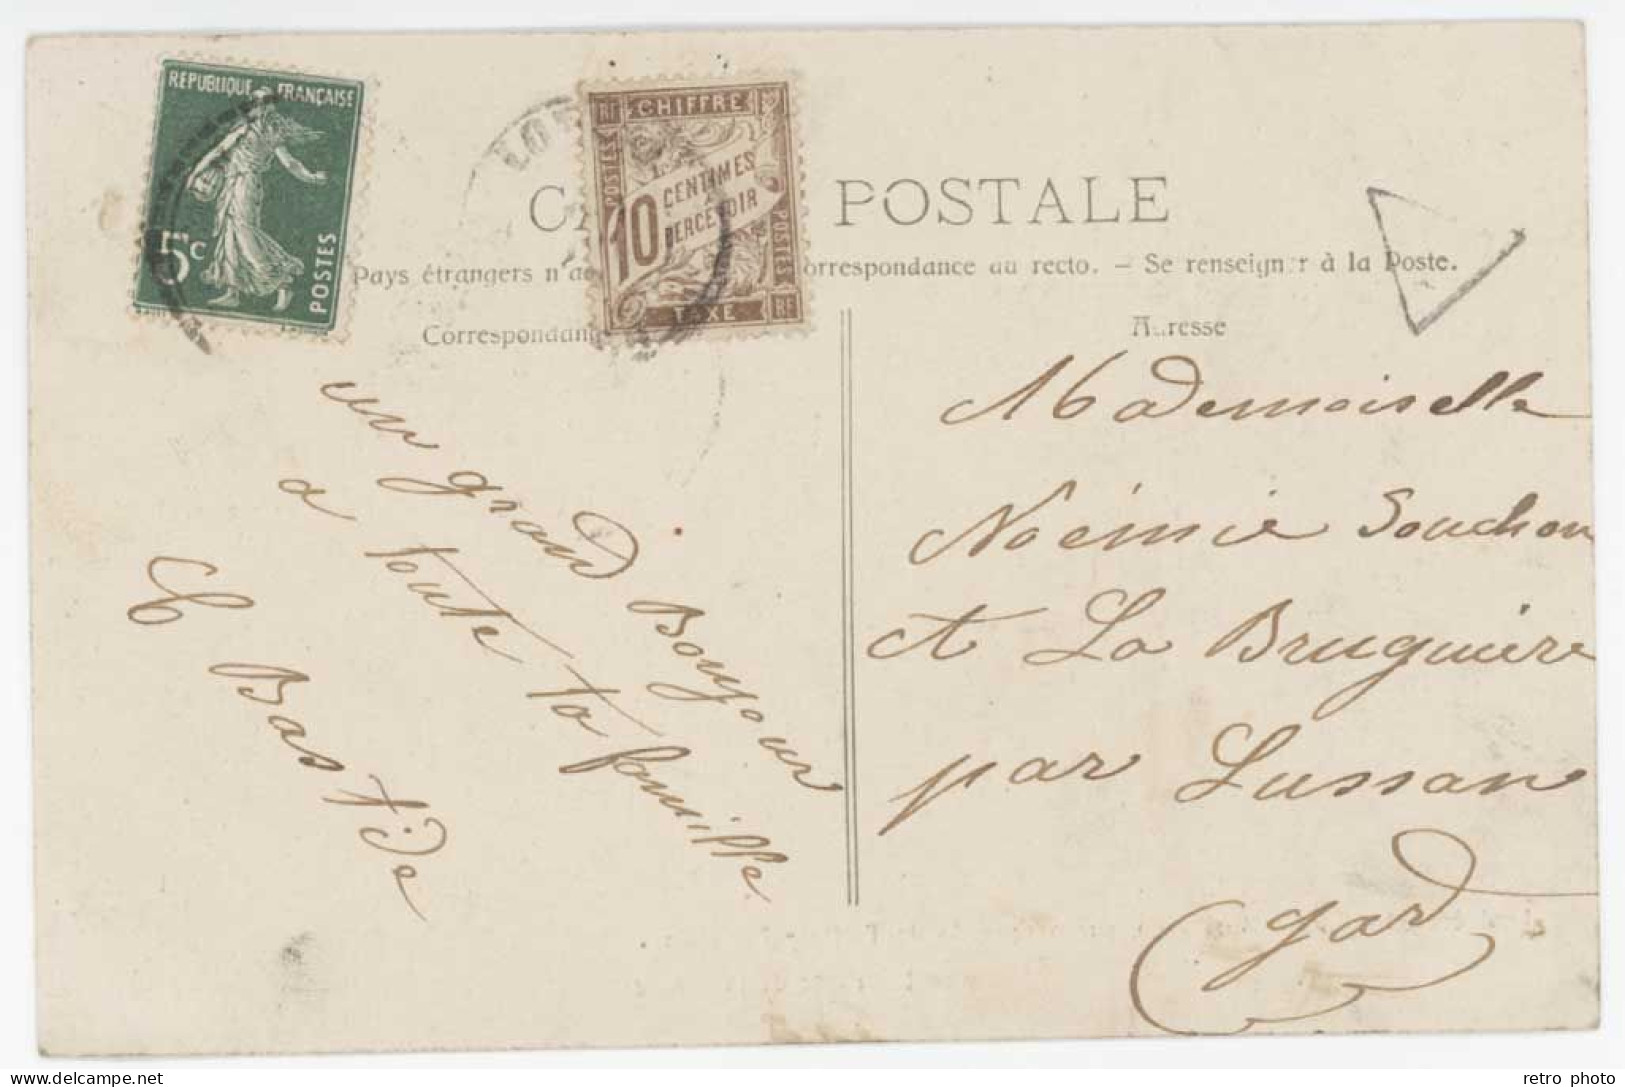 RÉPUBLIQUE FRANÇAISE
5c
POSTES
RF CHIFFRE
POSTES
10 CENTIMES
PERCEVOIR
POSTES
TAXE RF
POSTALE
Pays étrangers n'ac orrespondance au recto. – Se renseigner à la Poste.
Correspondanc
Adresse
un grand Bonjour
a toute ta famille
C Bastide
Mademoiselle
Noémie Souchon
A La Bruguière
par Lussan
gard
delcampe.net
retro photo